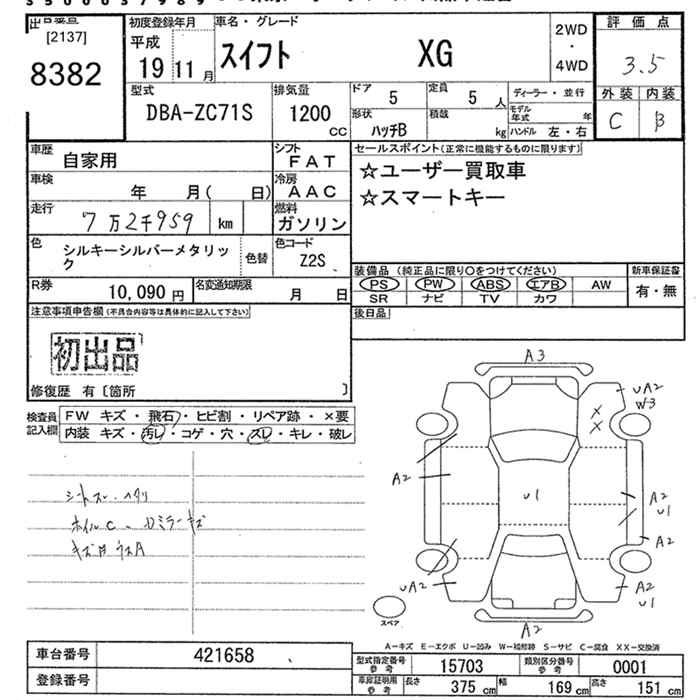 出品番
[2137]
8382
初度登録年月
平成
19 11 月
車名・グレード
スイフト XG
2WD
・
4WD
評価点
3.5
外装 内装
C B
型式
DBA-ZC71S
排気量
1200
cc
ドア
5
定員
5 人
形状
ハッチB
積載
kg
ディーラー・並行
モデル年式 年
ハンドル 左・右
車歴
自家用
シフト
FAT
車検
年 月( 日)
冷房
AAC
走行
7万2千959 km
燃料
ガソリン
色
シルキーシルバーメタリック
色替
色コード
Z2S
R券
10,090 円
名変通知期限
月 日
セールスポイント(正常に機能するものに限ります)
☆ユーザー買取車
☆スマートキー
装備品(純正品に限り○をつけてください)
PS PW ABS エアB AW
SR ナビ TV カワ
新車保証書
有・無
後日品
注意事項申告欄(不具合内容等は具体的に記入して下さい)
初出品
修復歴 有〔箇所 〕
検査員記入欄
FW キズ・飛石・ヒビ割・リペア跡・×要
内装 キズ・汚レ・コゲ・穴・スレ・キレ・破レ
シートスレ・ヘタリ
ホイルC
キズ
A3
UA2
W3
X
X
A2
U1
A2
U1
A2
UA2
A2
U1
A2
スペア
A-キズ E-エクボ U-凹み W-補修跡 S-サビ C-腐食 XX-交換済
車台番号 421658
登録番号
型式指定番号参考 15703
類別区分番号参考 0001
車庫証明用参考 長さ 375 cm 幅 169 cm 高さ 151 cm